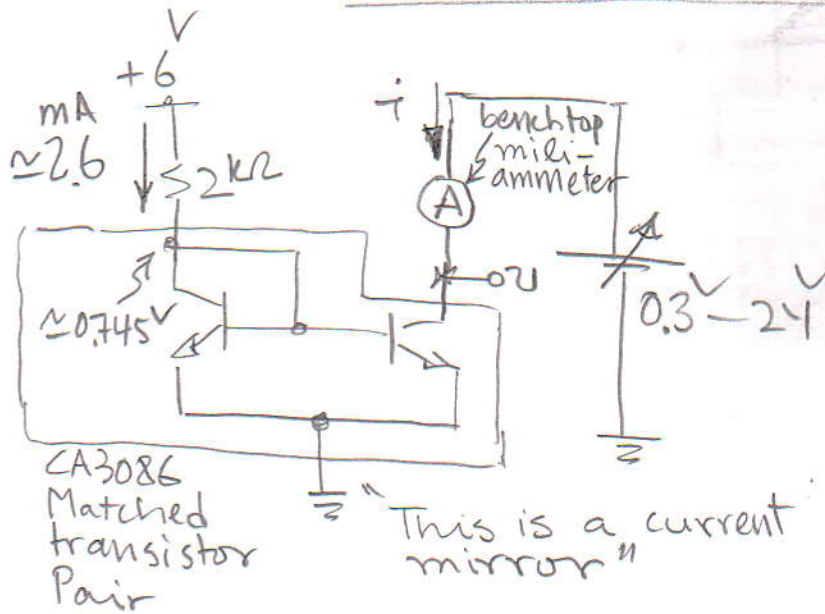 +6 V
mA
≃2.6
2kΩ
i
benchtop
mili-
ammeter
A
υ
≃0.745V
0.3V-24V
CA3086
Matched
transistor
Pair
"This is a current
mirror"